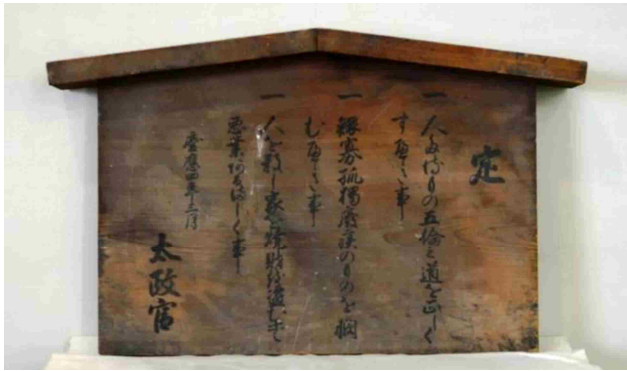 定
一 人たるもの五倫之道を正しく
すへき事
一 鰥寡孤獨癈疾のものを憫
むへき事
一 人を殺し家を焼財を盗む等之
悪業あるましく事
慶應四年三月
太政官